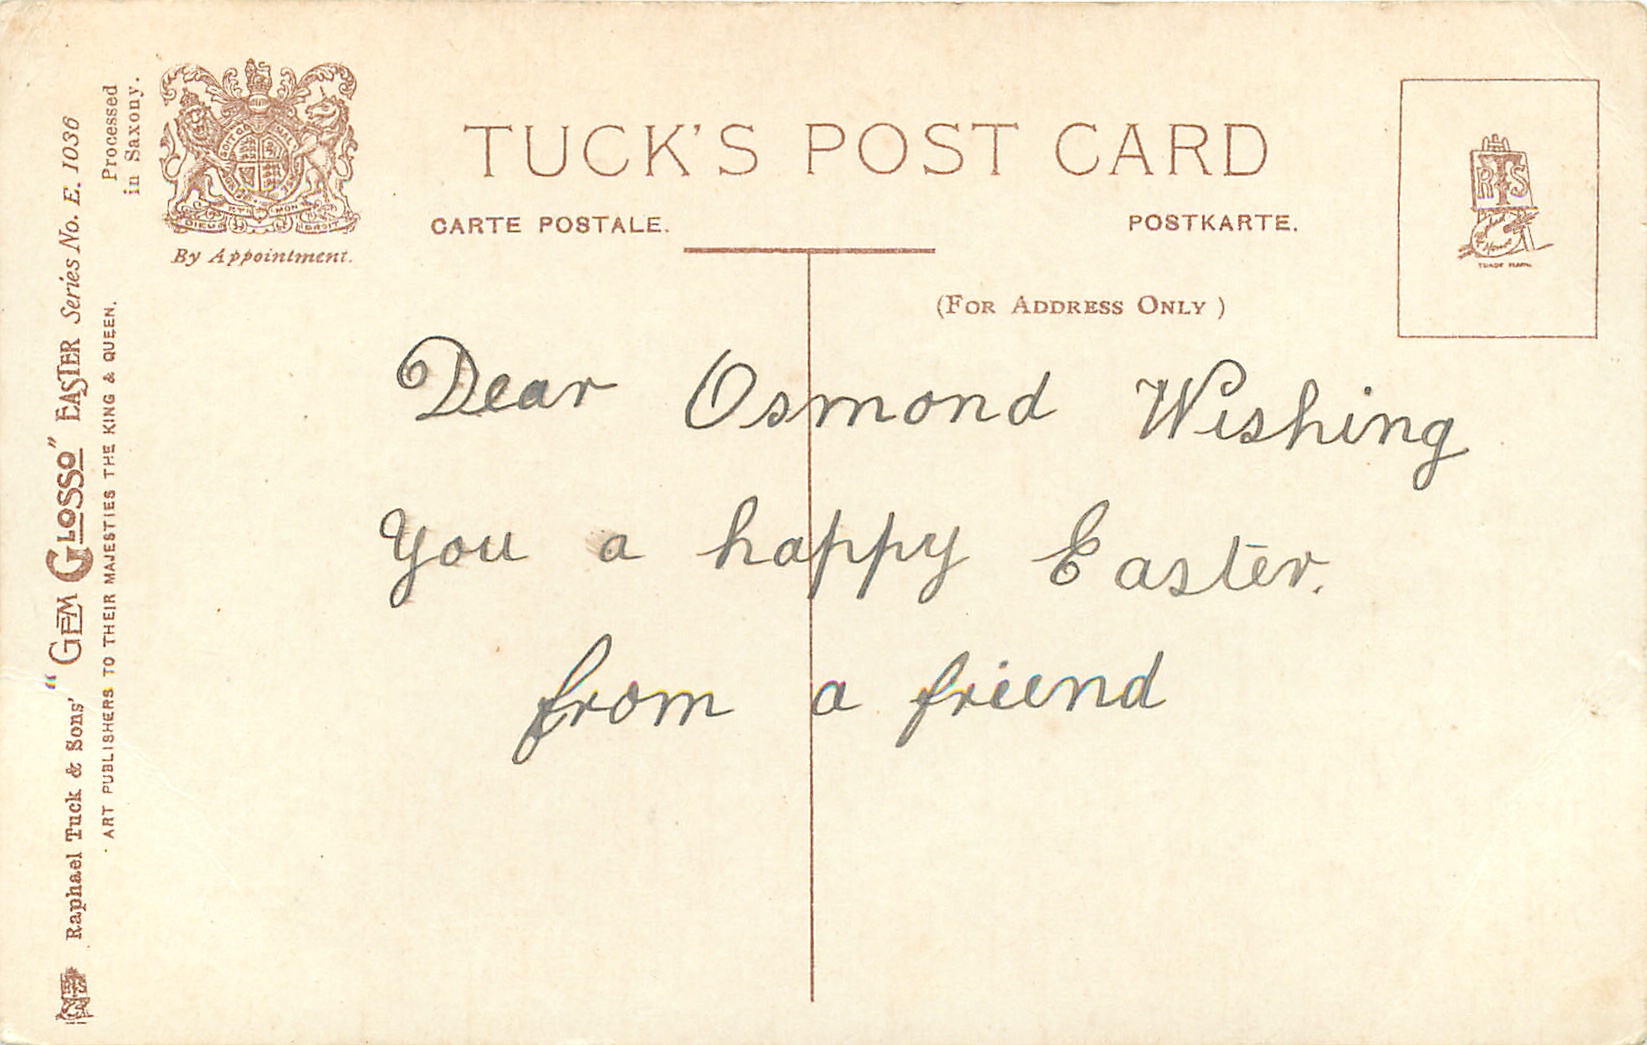 TUCK'S POST CARD
CARTE POSTALE.
POSTKARTE.
(FOR ADDRESS ONLY)
By Appointment.
Processed
in Saxony.
Raphael Tuck & Sons' "GEM GLOSSO" EASTER Series No. E. 1036
ART PUBLISHERS TO THEIR MAJESTIES THE KING & QUEEN.
DIEU ET MON DROIT
RTS
TRADE MARK
Dear Osmond Wishing
You a happy Easter.
from a friend